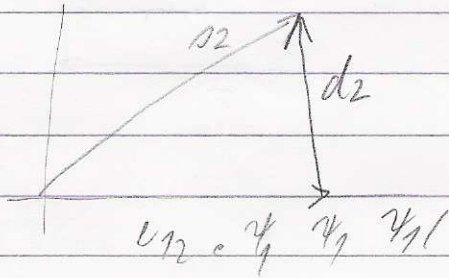 s2
d2
v12 ψ1 ψ1 ψ1